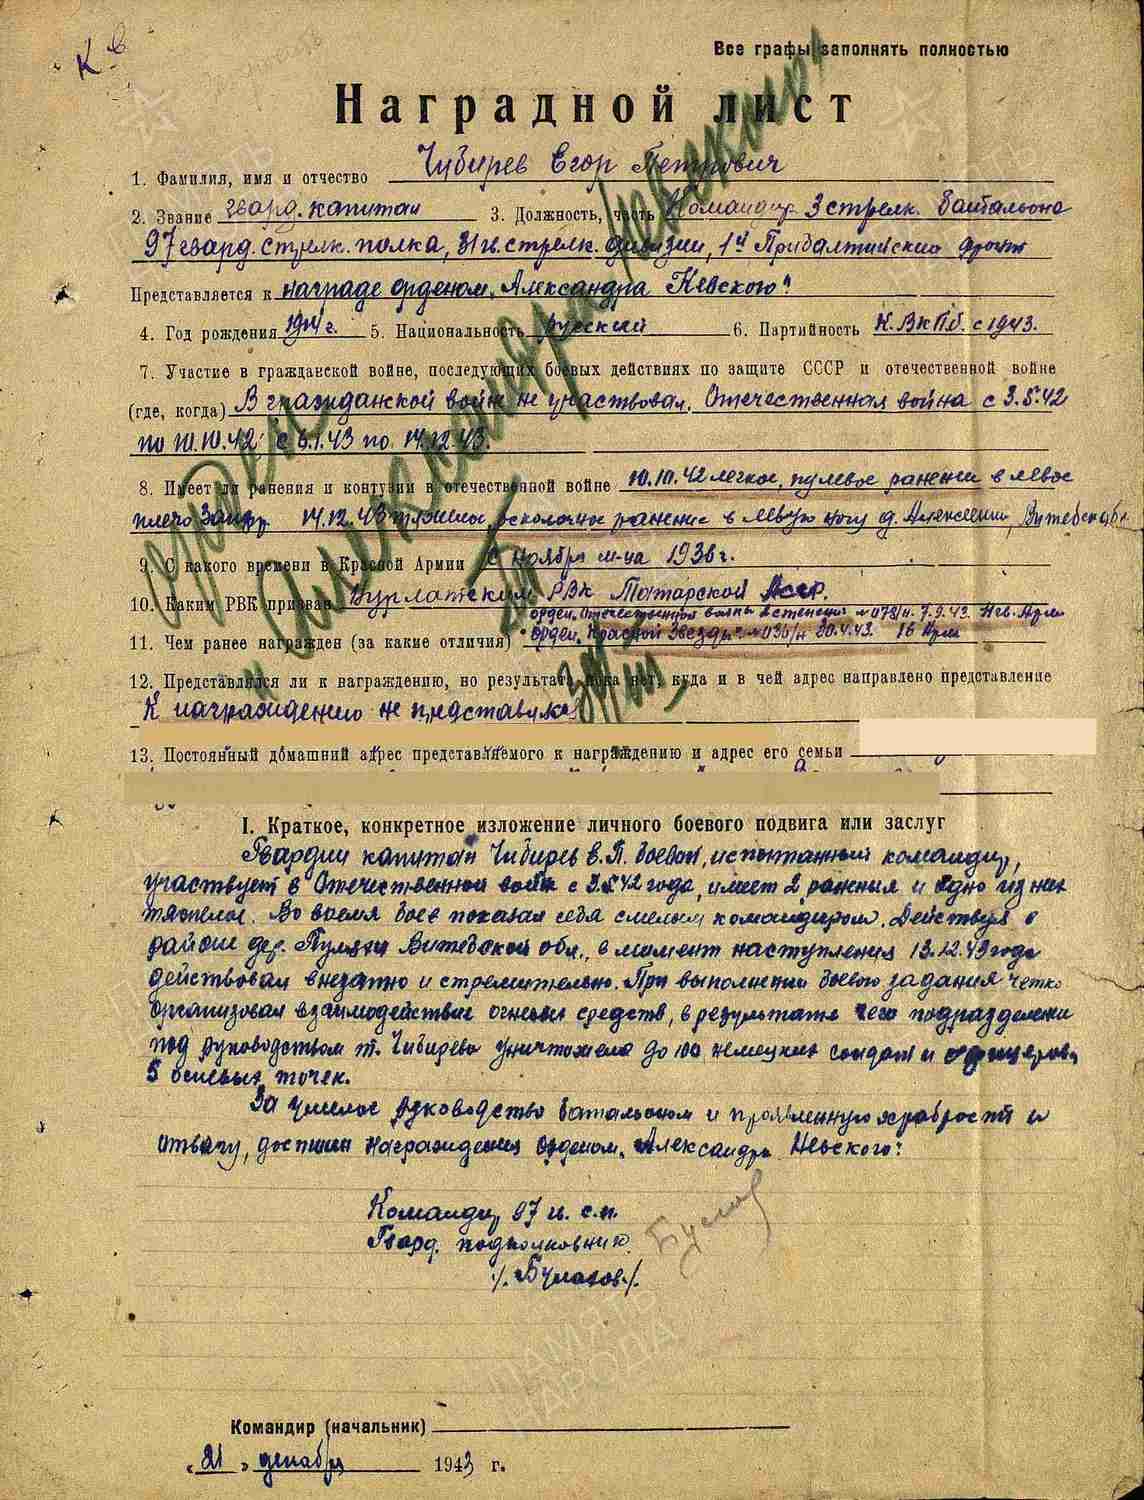 Все графы заполнять полностью
Наградной лист
1. Фамилия, имя и отчество Чибирев Егор Петрович
2. Звание гвард. капитан 3. Должность, часть Командир 3 стрелк. батальона
97 гвард. стрелк. полка, 31 гв. стрелк. дивизии, 1й Прибалтийский фронт
Представляется к награде орденом „Александра Невского"
4. Год рождения 5. Национальность русский 6. Партийность К. ВКПб. с 1943.
7. Участие в гражданской войне, последующих боевых действиях по защите СССР и отечественной войне
(где, когда) В гражданской войне не участвовал. Отечественная война с 3.5.42
по 10.10.42; с 6.1.43 по 14.12.43.
8. Имеет ли ранения и контузии в отечественной войне 10.10.42 легкое, пулевое ранение в левое
плечо 14.12.43 тяжелое, осколочное ранение в левую ногу д. Витебской
9. С какого времени в Красной Армии С ноября м-ца 1936 г.
10. Каким РВК призван РВК Татарской Асср.
орден. Отечественной войны 2 степени №078/н. 7.9.43. Арм
11. Чем ранее награжден (за какие отличия) Орден „Красной Звезды" №036/н 30.4.43. 16 Арм
12. Представлялся ли к награждению, но результата пока нет, куда и в чей адрес направлено представление
К награждению не представлялся
13. Постоянный домашний адрес представляемого к награждению и адрес его семьи
орден Александра Невского
I. Краткое, конкретное изложение личного боевого подвига или заслуг
Гвардии капитан Чибирев Е.П. боевой, испытанный командир,
участвует в Отечественной войне с 3.5.42 года, имеет 2 ранения и одно из них
тяжелое. Во время боев показал себя смелым командиром. Действуя в
районе дер. Витебской обл., в момент наступления 13.12.43 года
действовал внезапно и стремительно. При выполнении боевого задания четко
организовал взаимодействие огневых средств, в результате чего подразделения
под руководством т. Чибирева уничтожено до 100 немецких солдат и офицеров,
5 огневых точек.
За умелое руководство батальоном и проявленную храбрость и
отвагу, достоин награждения орденом „Александра Невского".
Командир 97 гв. с.п.
Гвард. подполковник
ПАМЯТЬ
НАРОДА
Командир (начальник)
„21" декабря 1943 г.